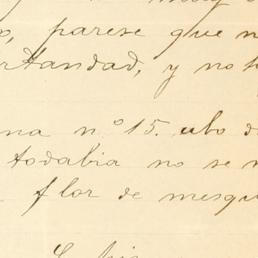 , parese que n
rtandad, y no h
na nº 15. ubo d
todabia no se n
flor de mesqu